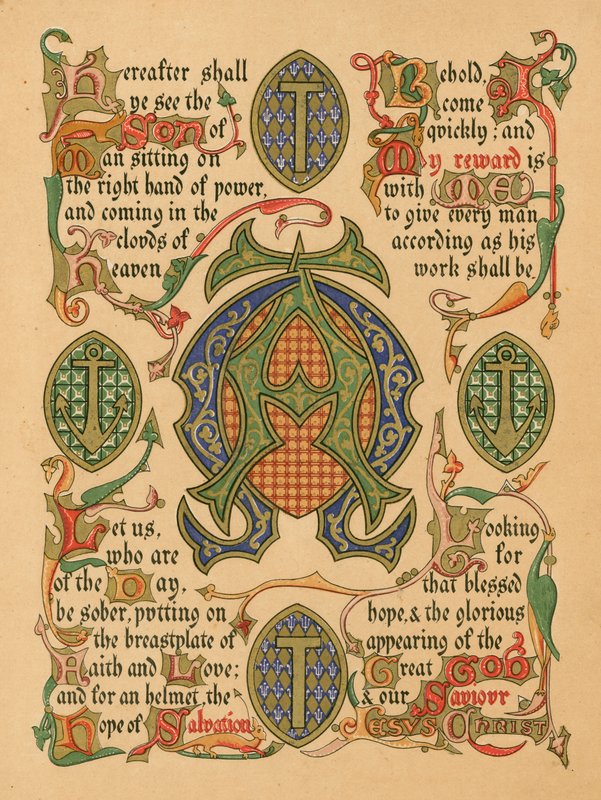 Hereafter shall
ye see the
Son of
Man sitting on
the right hand of power,
and coming in the
clovds of
Heaven
Behold, I
come
qvickly; and
My reward is
with ME
to give every man
according as his
work shall be.
Let us,
who are
of the Day,
be sober, pvtting on
the breastplate of
Faith and Love;
and for an helmet, the
hope of Salvation.
Looking
for
that blessed
hope, & the glorious
appearing of the
Great GOD
& our Saviovr
JESVS CHRIST